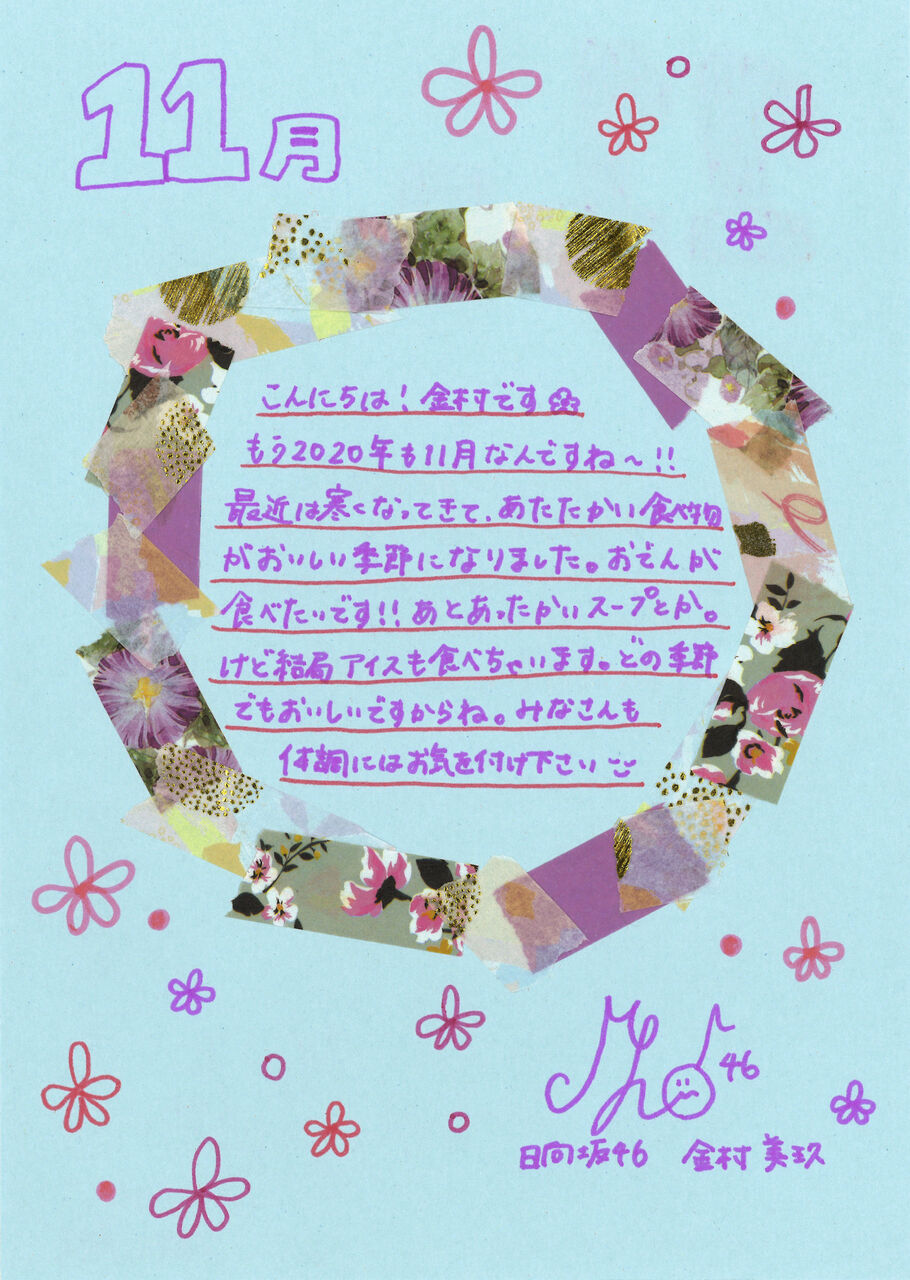 11月
こんにちは！金村です
もう2020年も11月なんですね〜!!
最近は寒くなってきて、あたたかい食べ物
がおいしい季節になりました。おでんが
食べたいです!!あとあったかいスープとか。
けど結局アイスも食べちゃいます。どの季節
でもおいしいですからね。みなさんも
体調にはお気を付け下さい
46
日向坂46 金村美玖